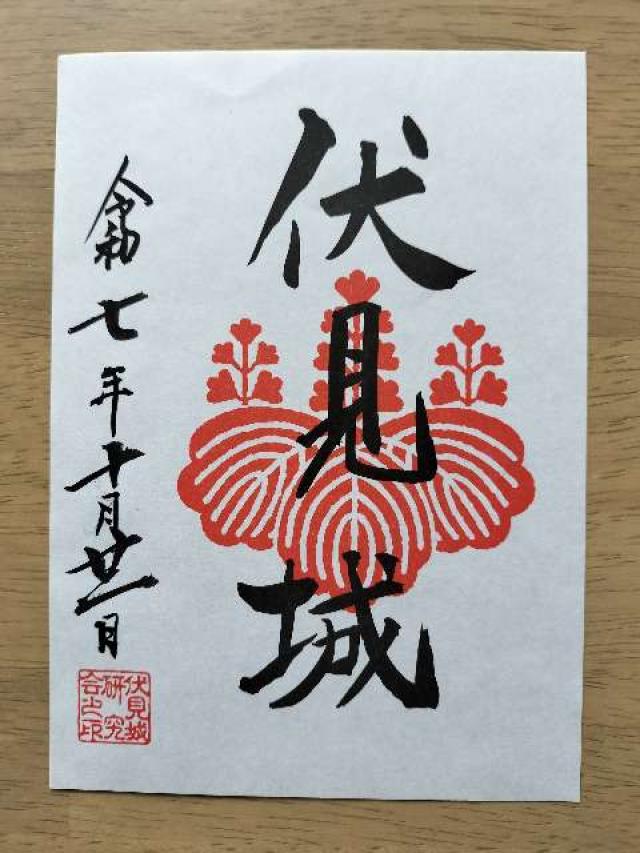 伏見城
令和七年十月廿一日
伏見城
研究
会之印